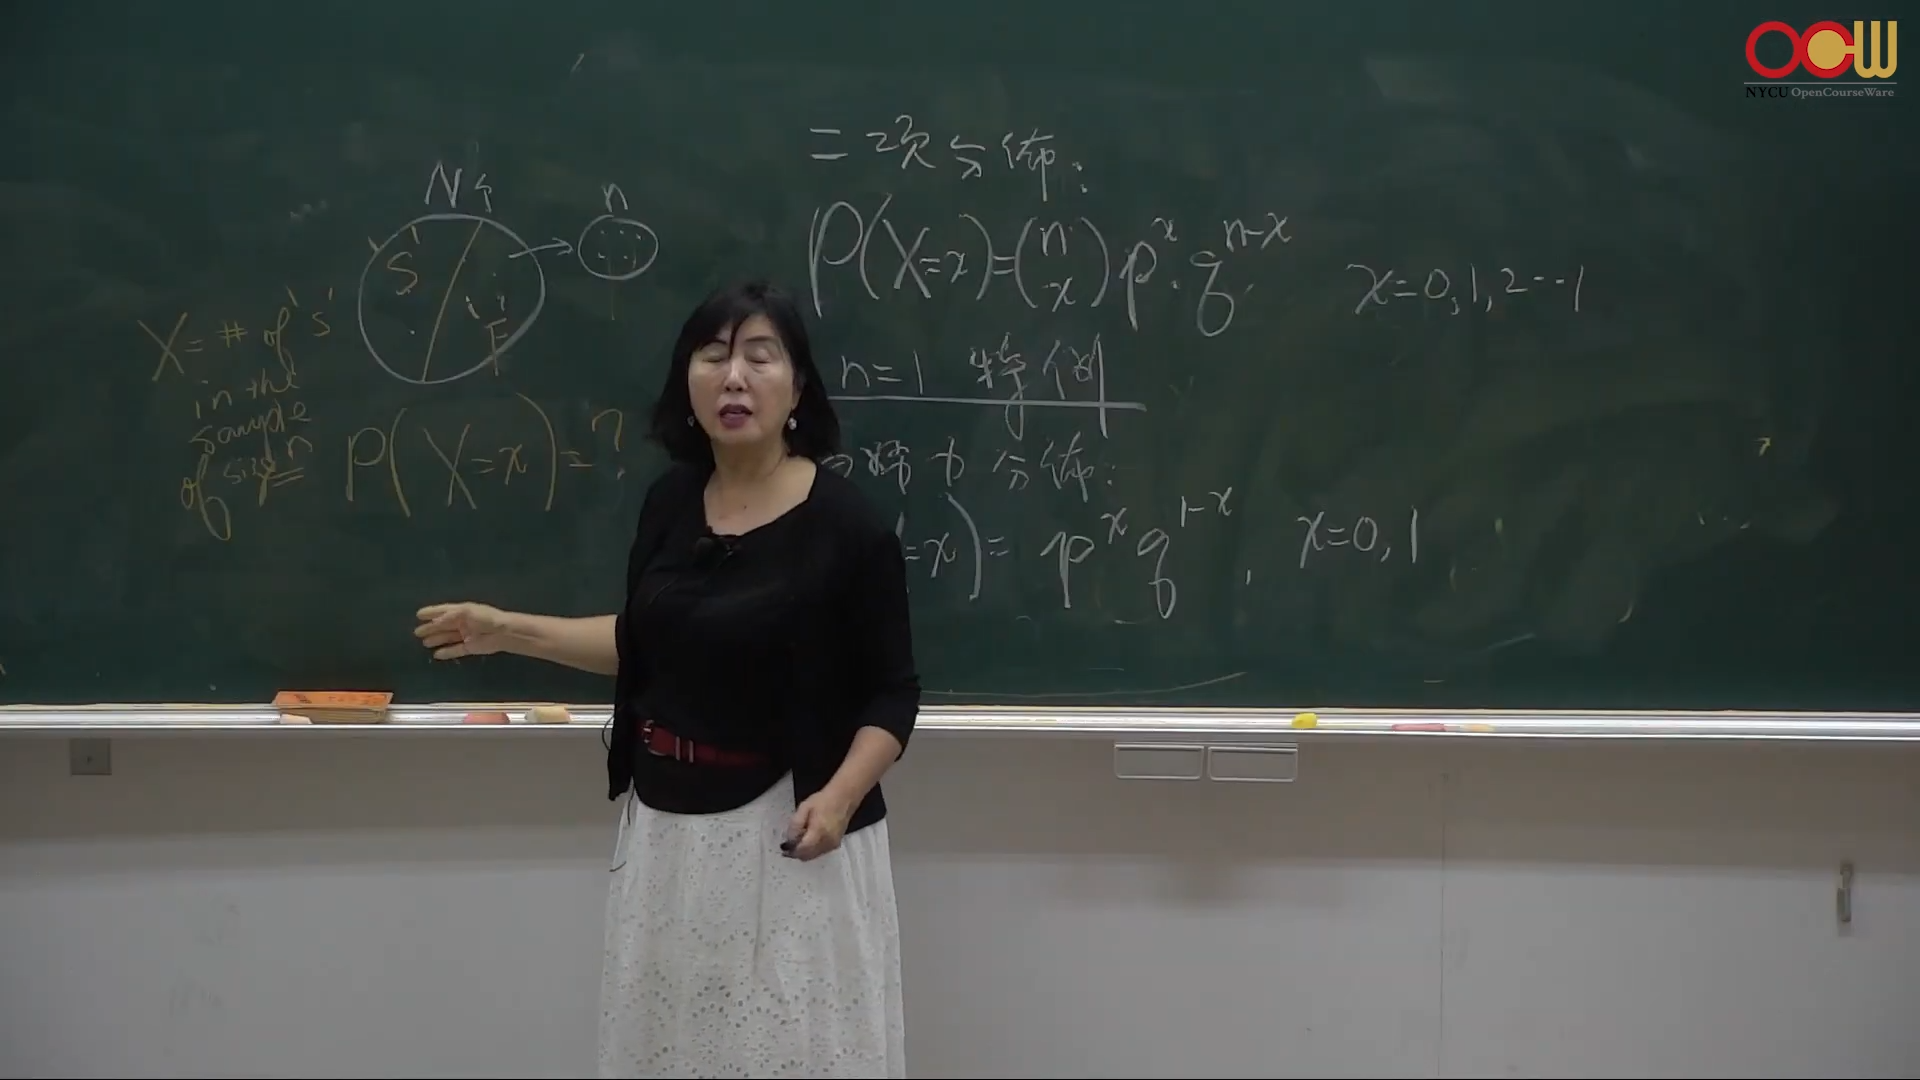 OCW
NYCU OpenCourseWare
N个
n
S
F
X = # of 's'
in the
sample
of size n
P(X=x)=?
二項分佈:
P(X=x)=(n x) p^x · q^{n-x}
x=0,1,2--1
n=1 特例
分佈:
=x)= p^x q^{1-x}, x=0,1